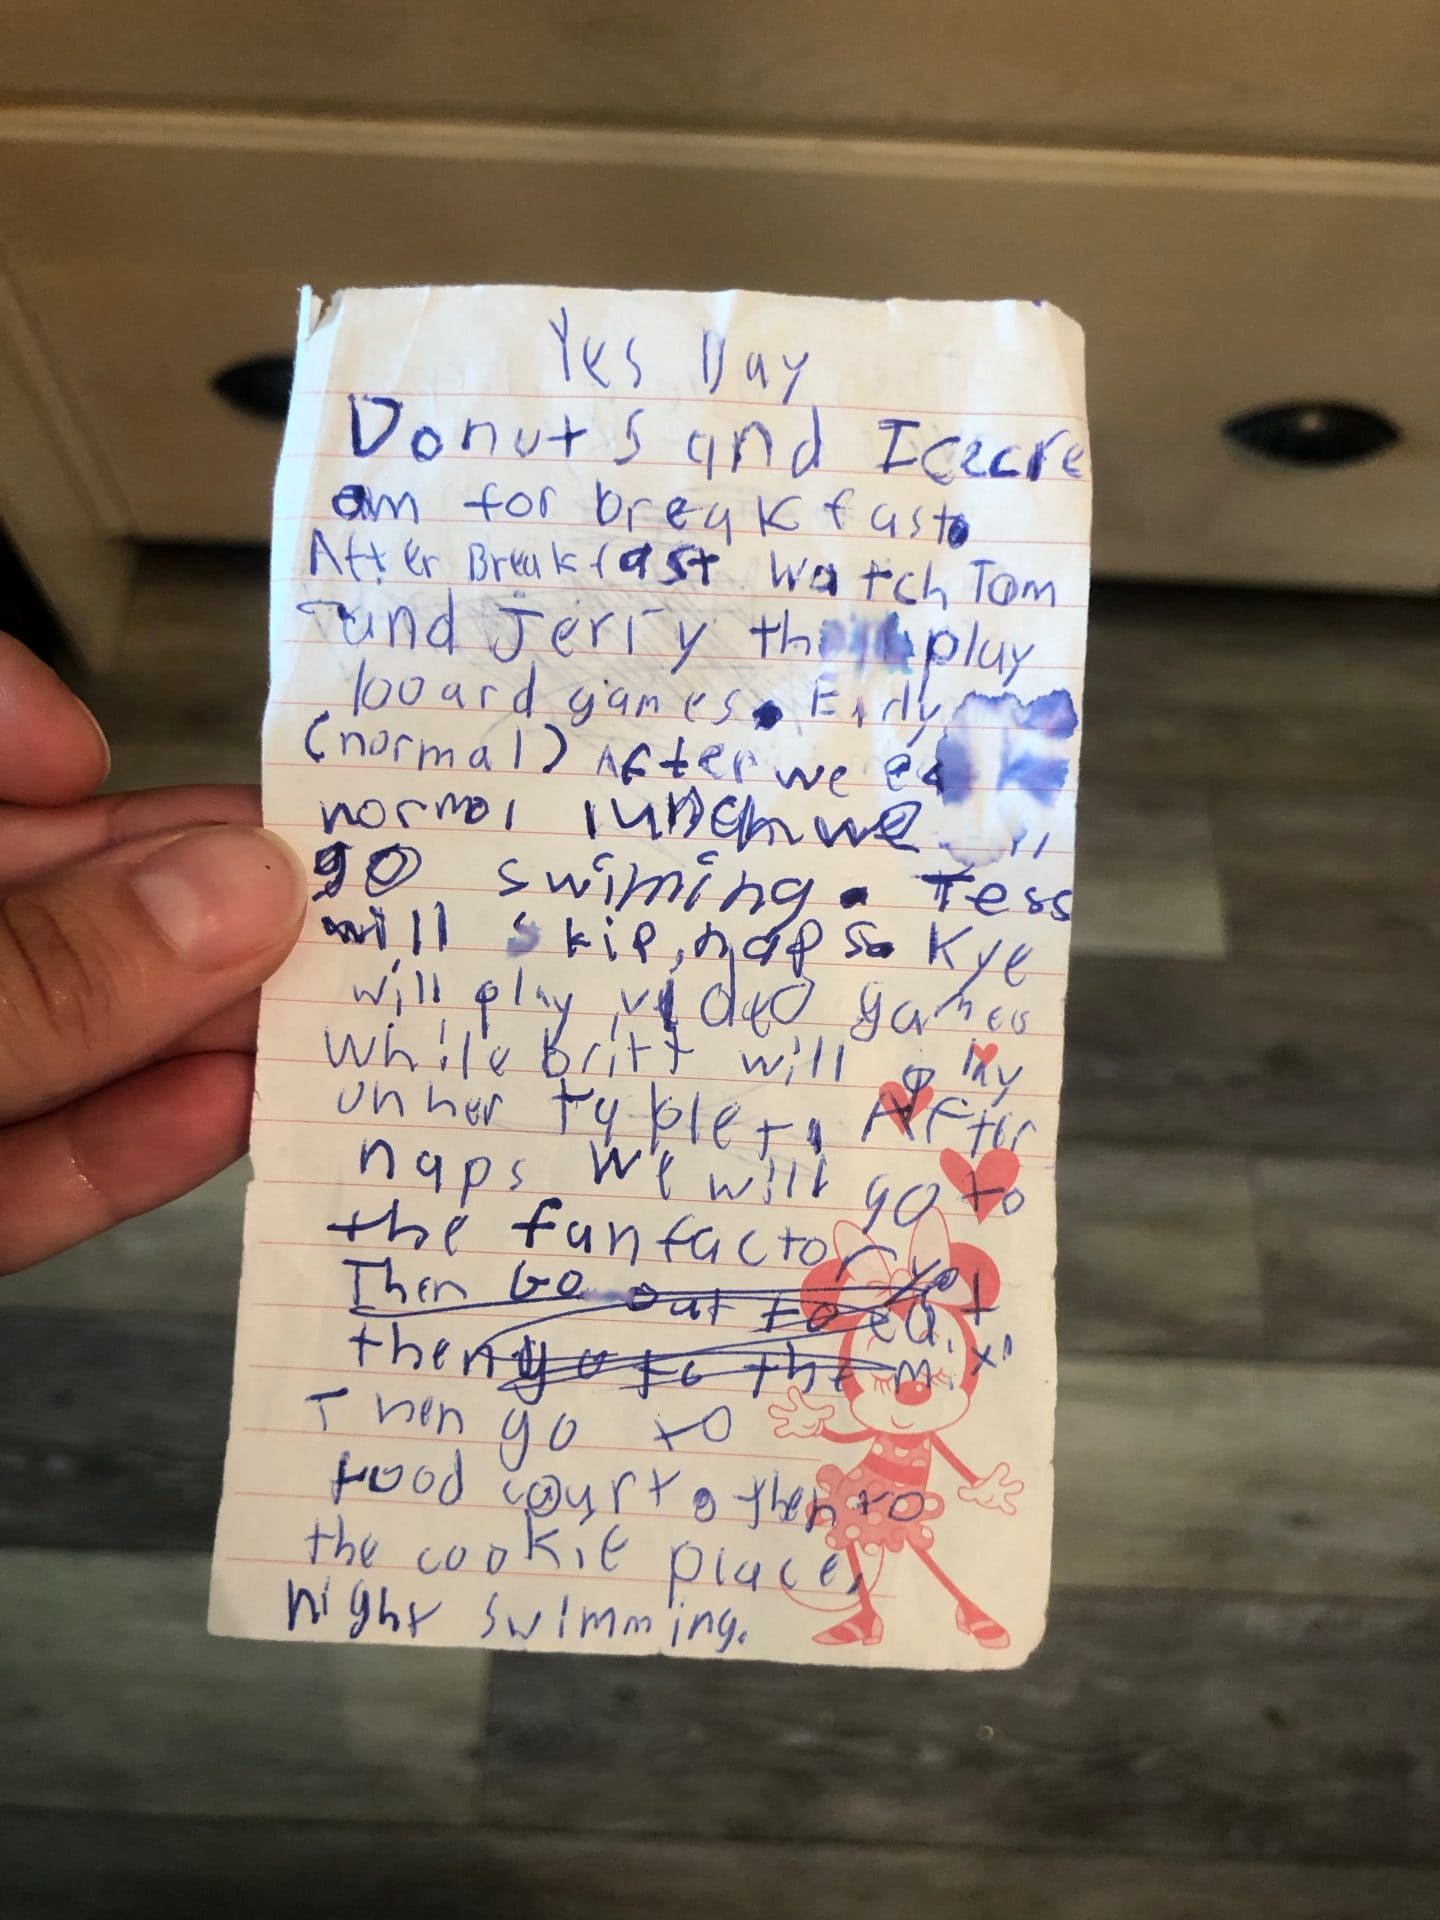 Yes Day
Donuts and Icecre
am for breakfast.
After Breakfast Watch Tom
and Jerry play
board games. Early
(normal) After we
normal lunch we
go swiming. Tess
will skip nap so Kye
will play video games
While britt will play
on her tablet. After
naps we will go to
the funfactory
Then Go out to eat
then go to the
Then go to
food court. then to
the cookie place,
night swimming.